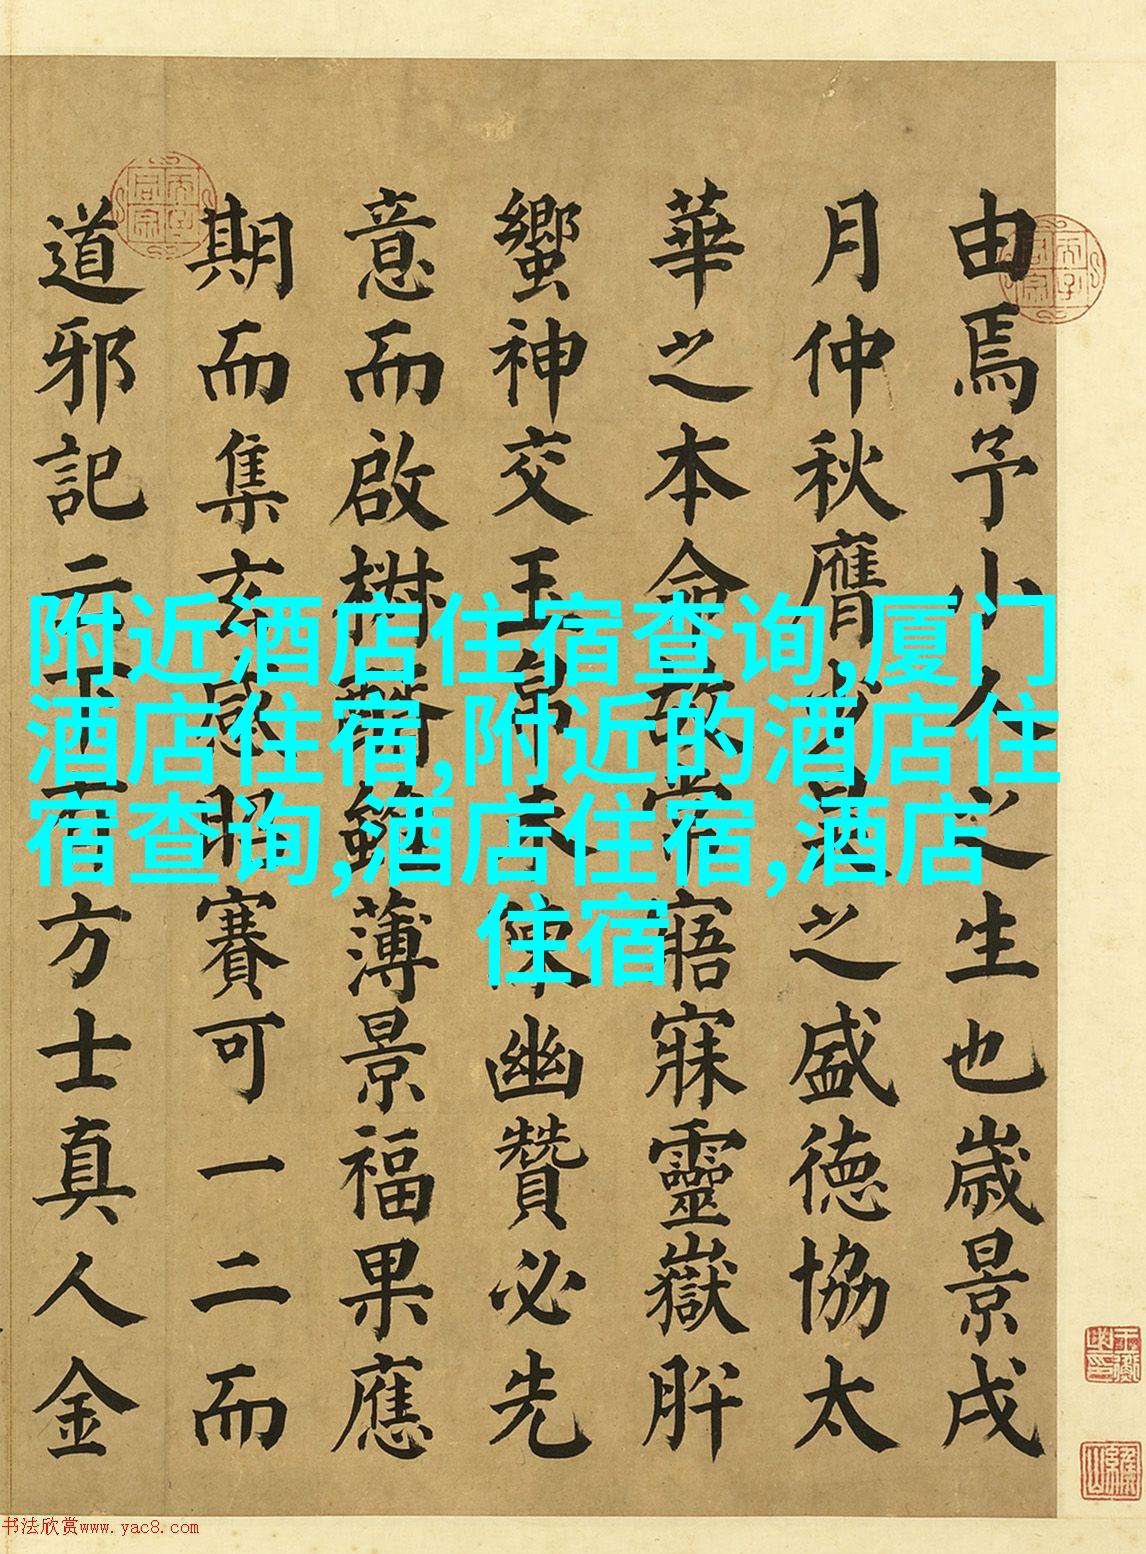 由焉予小人之生也歲景戌
月仲秋膺少昊之盛德協太
華之本命故常寤寐靈嶽肸
蠁神交玉帛未陳幽贊必先
意而啟樹薄景福果應
期而集玄感昭賽可一二而
道邪記云方士真人金
附近酒店住宿查询,厦门
酒店住宿,附近的酒店住
宿查询,酒店住宿,酒店
住宿
书法欣赏www.yac8.com